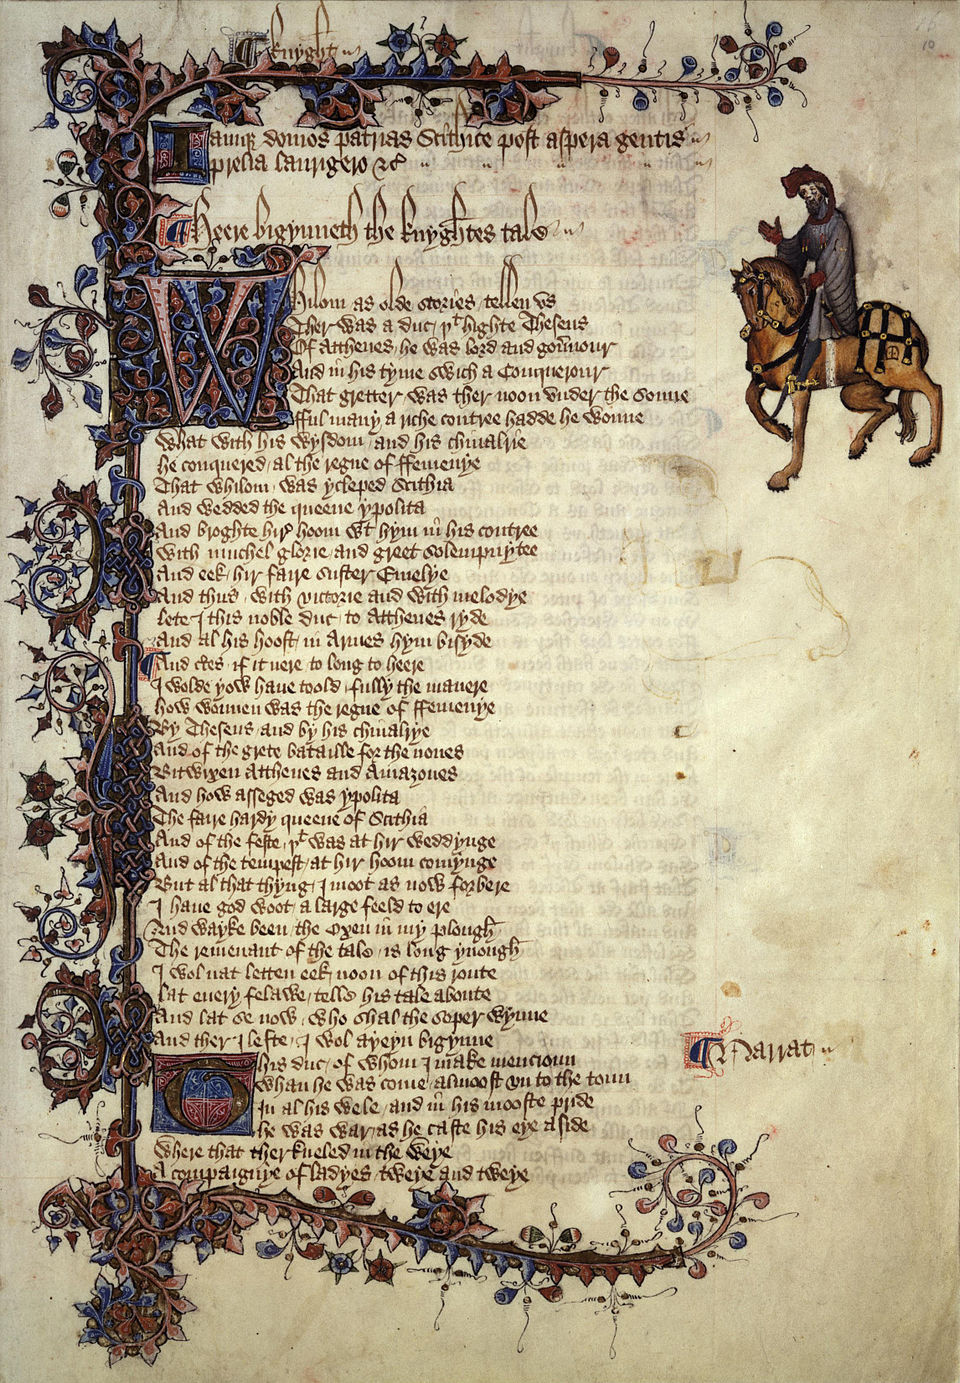 ¶ Knyght
Iamque domos patrias Scithice post aspera gentis
prelia laurigero &c
¶ Heere bigynneth the knyghtes tale
Whilom as olde stories / tellen vs
Ther was a duc / þt highte Theseus
Of Atthenes / he was lord and gou̅nour
And in his tyme swich a Conquerour
That gretter was ther noon vnder the sonne
fful many a riche contree hadde he wonne
What with his wysdom / and his chiualrie
he conquered / al the regne of ffemenye
That whilom / was ycleped Scithia
And wedded the queene ypolita
And broghte hire hoom wt hym in his contree
with muchel glorie / and greet solempnytee
And eek / hir faire suster Emelye
And thus / with victorie and with melodye
lete I this noble duc / to Atthenes ryde
And al his hoost / in Armes hym bisyde
¶ And certes / if it nere to long to heere
I wolde yow haue toold / fully the manere
how wonnen was the regne of ffemenye
By Theseus and by his chiualrye
And of the grete bataille for the nones
Bitwixen Atthenes and Amazones
And how asseged was ypolita
The faire hardy queene of Scithia
And of the feste / þt was at hir weddynge
And of the tempest / at hir hoom comynge
But al that thyng / I moot as now forbere
I haue god woot / a large feeld to ere
And wayke been / the Oxen in my plough
The remenant of the tale / is long ynough
I wol nat letten eek noon of this route
lat euery felawe / telle his tale aboute
And lat se now / who shal the soper wynne
And ther I lefte / I wol ayeyn bigynne
¶ Narrat
This duc / of whom I make mencioun
whan he was come / almoost vn to the toun
In al his wele / and in his mooste pride
he was war / as he caste his eye aside
where that ther kneled in the weye
A compaignye of ladyes / tweye and tweye